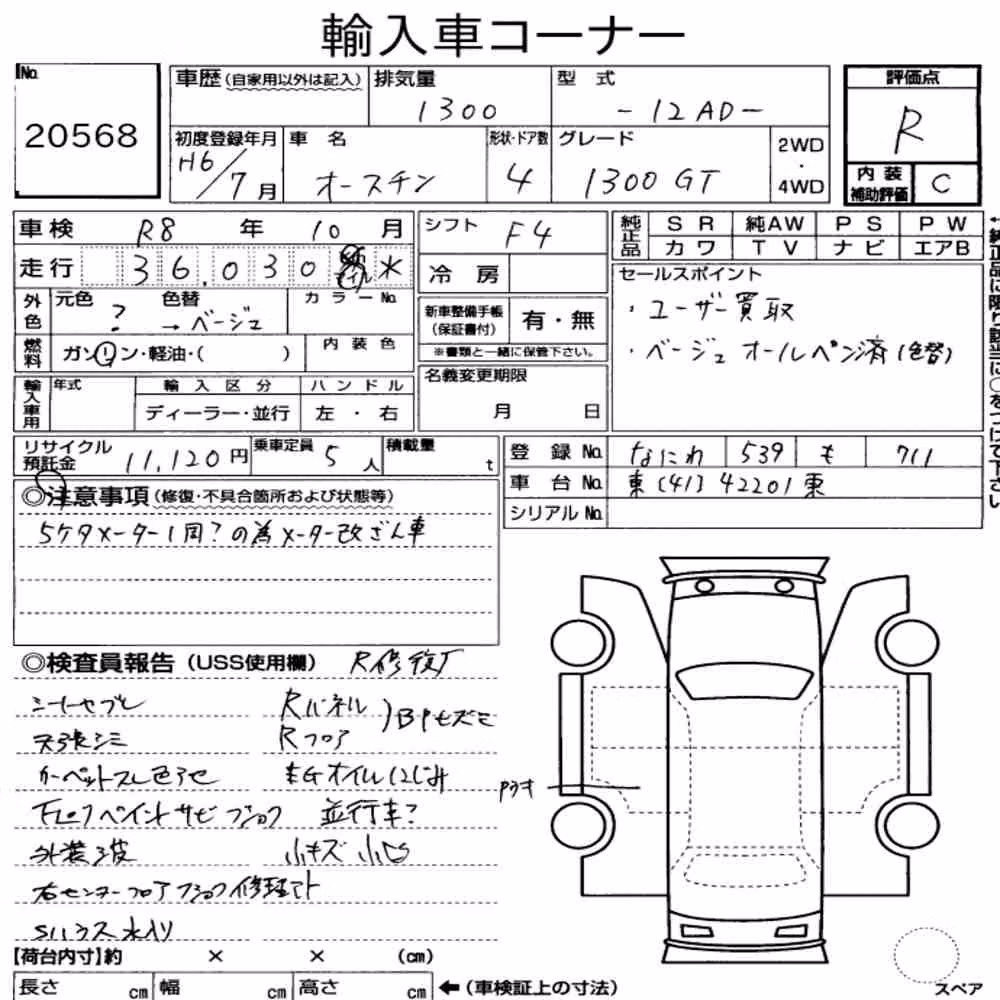 輸入車コーナー
No. 20568
車歴(自家用以外は記入) 排気量 1300 型式 -12AD-
評価点 R
初度登録年月 H6/7月 車名 オースチン 形状・ドア数 4 グレード 1300 GT 2WD・4WD
内装補助評価 C
車検 R8年10月 シフト F4
純正品 SR 純AW PS PW
カワ TV ナビ エアB
走行 36,030 マイル 冷房
セールスポイント
・ユーザー買取
・ベージュオールペン済(色替)
外色 元色 ? 色替 →ベージュ カラーNo.
新車整備手帳(保証書付) 有・無
※書類と一緒に保管下さい。
燃料 ガソリン・軽油・( ) 内装色
輸入車用 年式 輸入区分 ハンドル
ディーラー・並行 左・右
名義変更期限
月 日
←純正品に限り該当に○をつけて下さい
リサイクル預託金 11,120円 乗車定員 5人 積載量 t
登録No. なにわ 539 も 711
車台No. 東(41)42201東
シリアルNo.
◎注意事項(修復・不具合箇所および状態等)
5ケタメーター1周?の為メーター改ざん車
◎検査員報告(USS使用欄) R修復歴
シートヤブレ Rパネル
天張シミ Rフロア
カーペットスレ色アセ EGオイルにじみ
下回リペイントサビ 並行車?
外装波 小キズ 小凹
右センターフロア
Sハウス水入り
【荷台内寸】約 × × (cm)
長さ cm 幅 cm 高さ cm ←(車検証上の寸法)
スペア